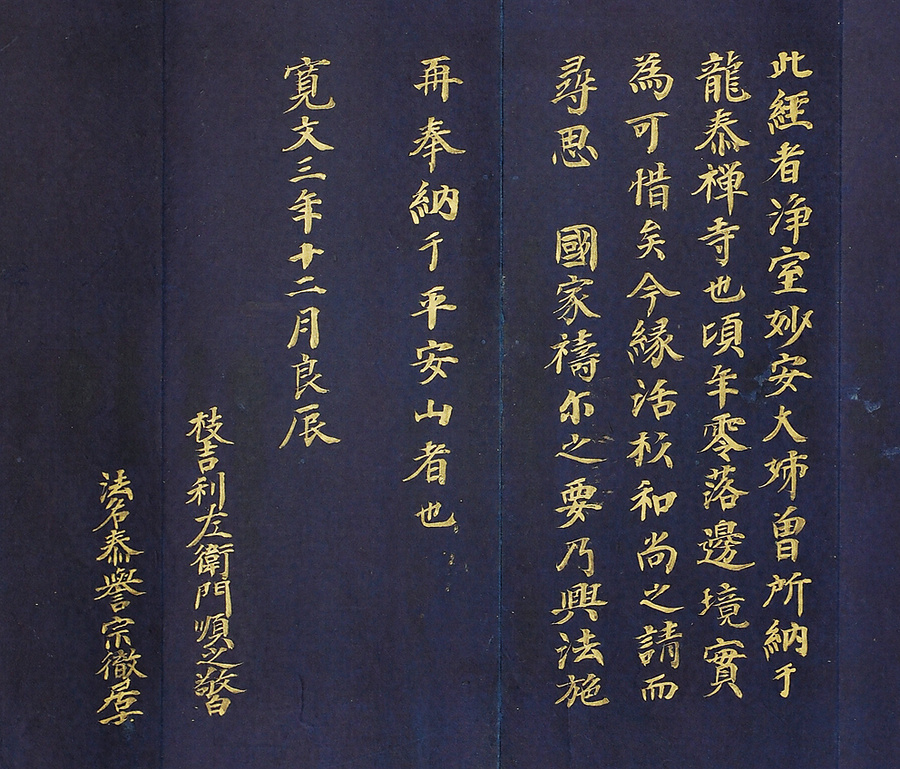 此經者浄室妙安大姉曽所納于
龍泰禅寺也頃年零落邊境實
為可惜矣今縁活 和尚之請而
尋思　國家禱尓之要乃興法施
再奉納于平安山者也
寛文三年十二月良辰
枝吉利左衛門順之
法名泰譽宗徹居士